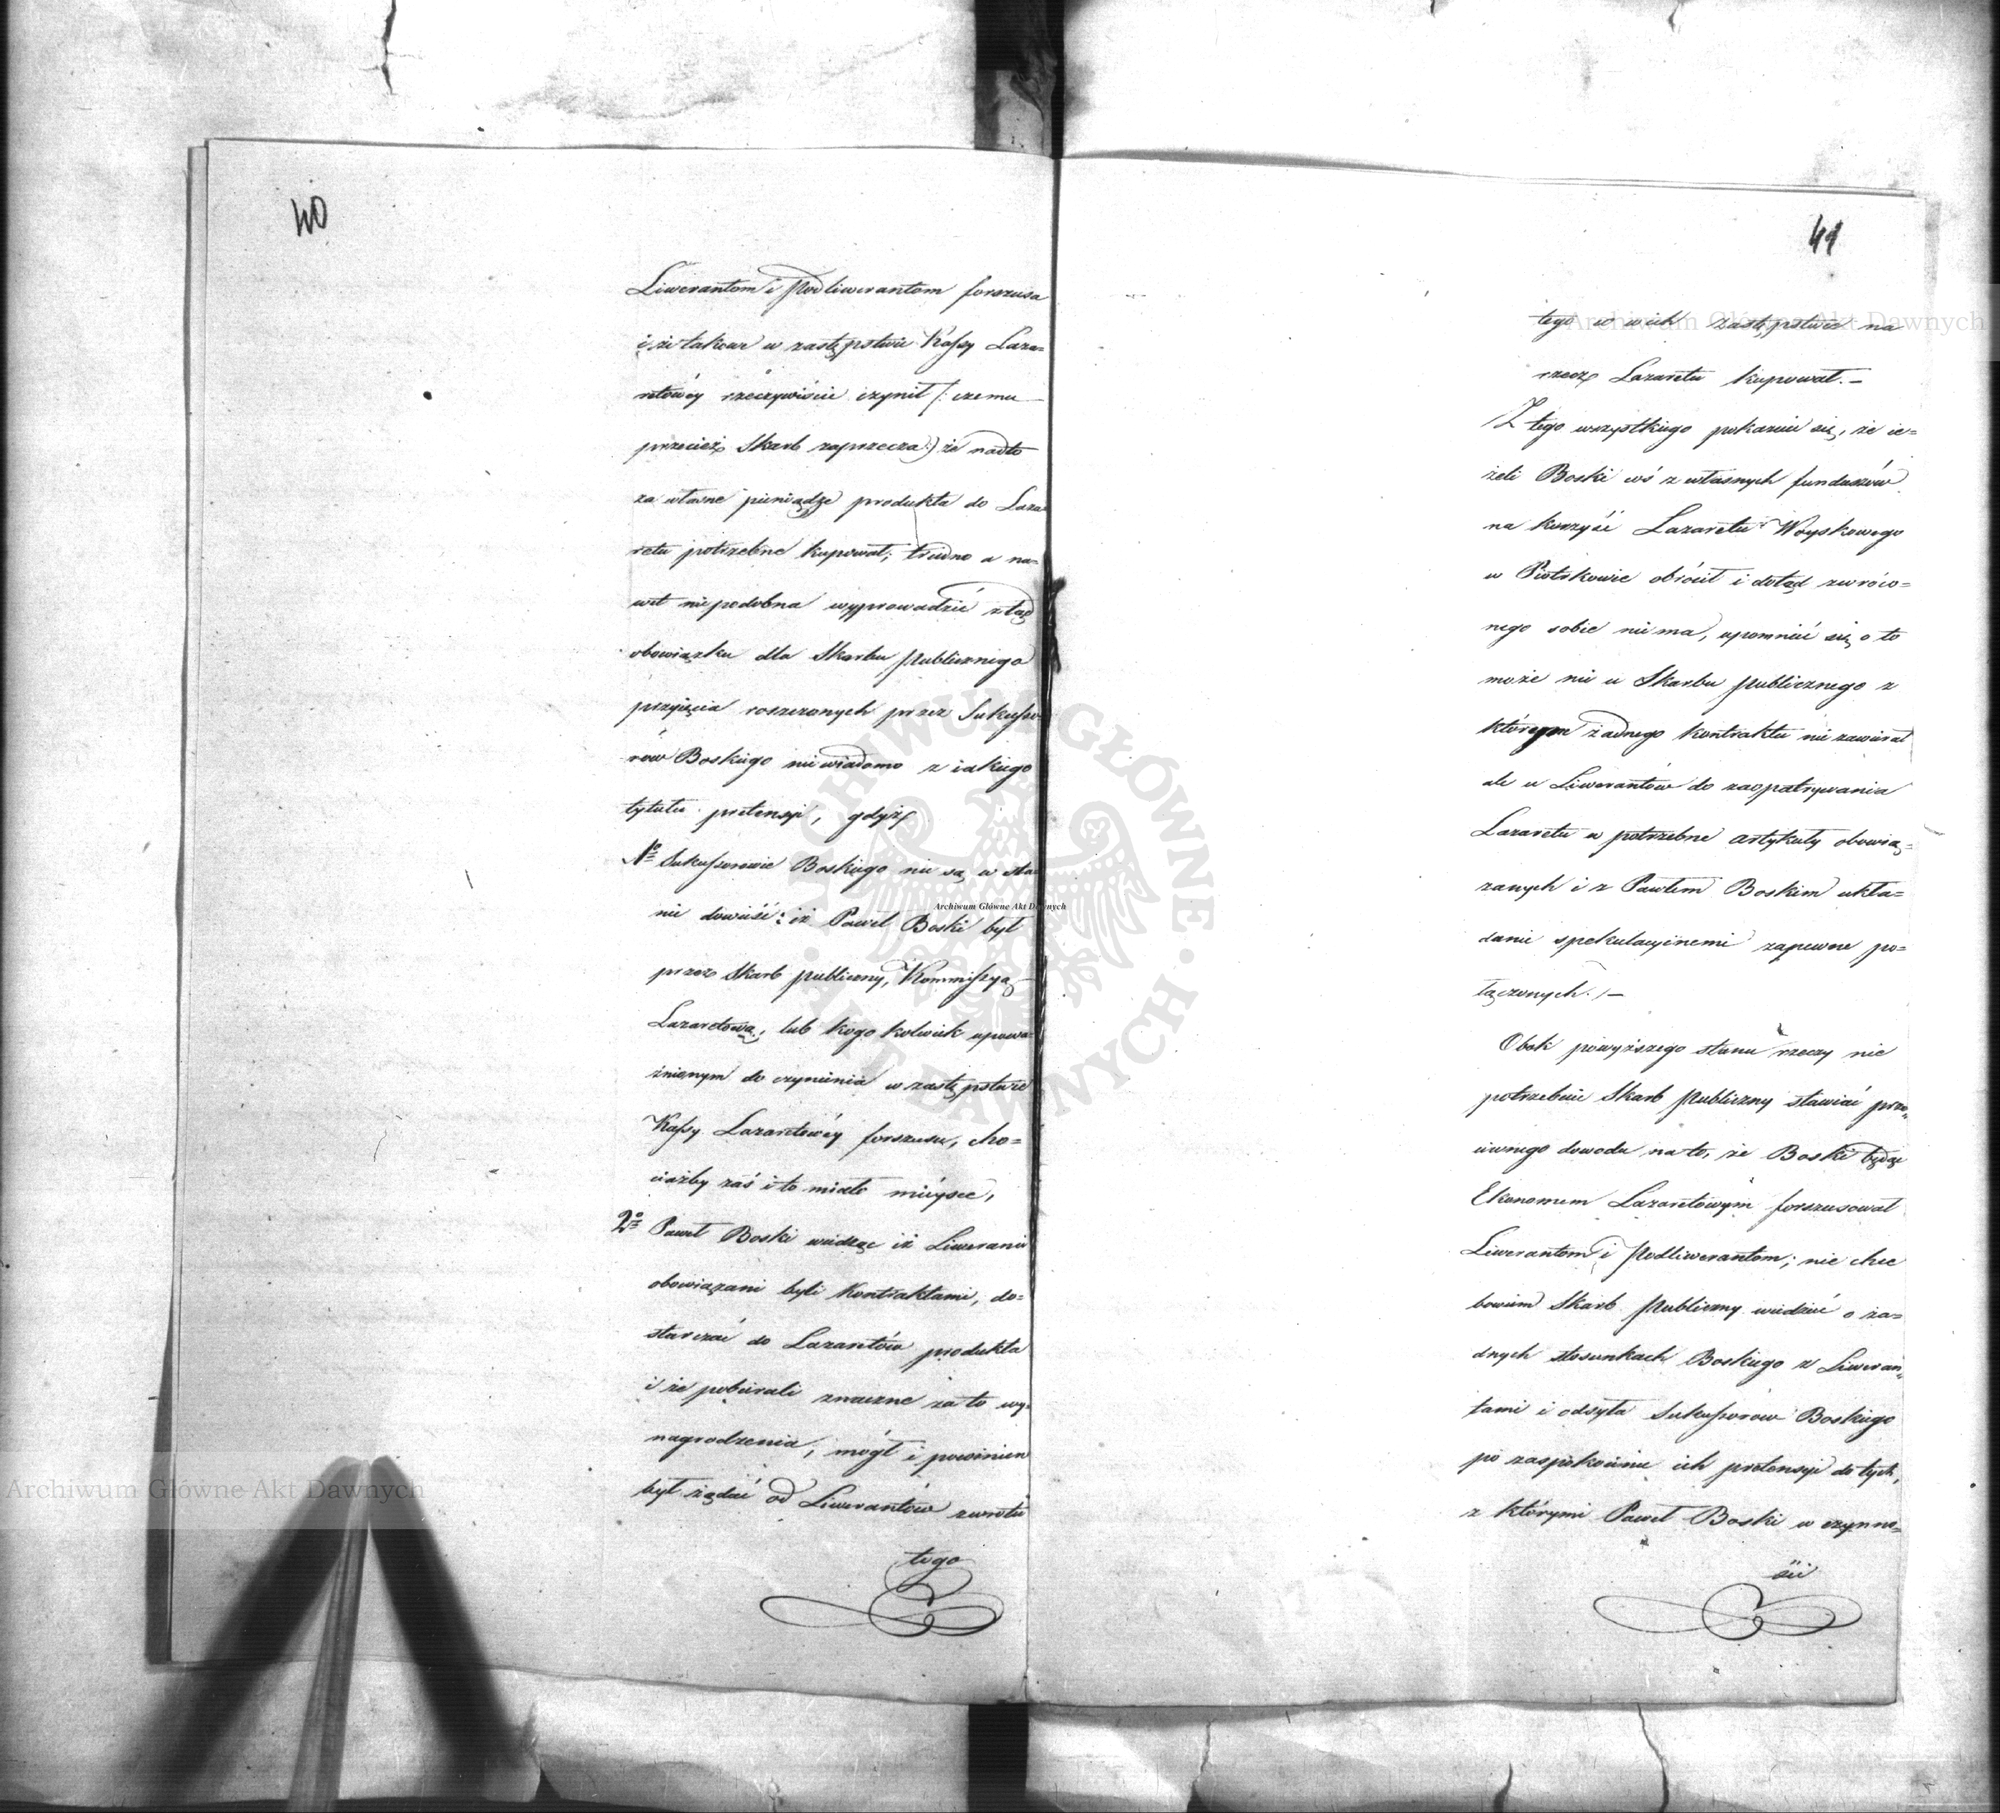 40
Liwerantom i Podliwerantom forszusa
i że takowe w zastępstwie Kassy Laza=
retowéy rzeczywiście czynił /: czemu
przecież Skarb zaprzecza :/ że nadto
za własne pieniądze produkta do Laza
retu potrzebne kupował; trudno a na=
wet niepodobna wyprowadzić ztąd
obowiązku dla Skarbu Publicznego
przyięcia roszczonych przez Sukcesso
rów Boskiego niewiadomo z iakiego
tytułu pretensyi, gdyż
1o Sukcessorowie Boskiego nie są w sta
nie dowieść: iż Paweł Boski był
przez Skarb publiczny, Kommissyą
Lazaretową, lub kogo kolwiek upowa=
żnionym do czynienia w zastępstwie
Kassy Lazaretowéy forszusu, cho=
ciażby zaś i to miało mieysce,
2o Paweł Boski widząc iż Liweranci
obowiązani byli Kontraktami, do=
starczać do Lazaretów produkta
i że pobierali znaczne za to wy=
nagrodzenia, mógł i powinien
był żądać od Liwerantów zwrotu
tego
41
tego co w ich zastępstwie na
rzecz Lazaretu kupował. –
Z tego wszystkiego pokazuie się, że ie=
żeli Boski coś z własnych funduszów
na korzyść Lazaretu Woyskowego
w Piotrkowie obrócił i dotąd zwróco=
nego sobie nie ma, upomnieć się o to
może nie u Skarbu publicznego z
którym żadnego kontraktu nie zawierał
ale u Liwerantów do zaopatrywania
Lazaretu w potrzebne artykuły obowią=
zanych i z Pawłem Boskim ukła=
dami spekulacyinemi zapewne po=
łączonych. / –
Obok powyższego stanu rzeczy nie
potrzebuie Skarb Publiczny stawiać prze=
ciwnego dowodu na to, że Boski będąc
Ekonomem Lazaretowym forszusował
Liwerantom i Podliwerantom; nie chce
bowiem Skarb Publiczny wiedzieć o ża=
dnych stosunkach Boskiego z Liweran=
tami i odsyła Sukcessorów Boskiego
po zaspokoienie ich pretensyi do tych,
z którymi Paweł Boski w czynno=
ści
Archiwum Główne Akt Dawnych
Archiwum Główne Akt Dawnych
Archiwum Główne Akt Dawnych
ARCHIWUM GŁÓWNE AKT DAWNYCH